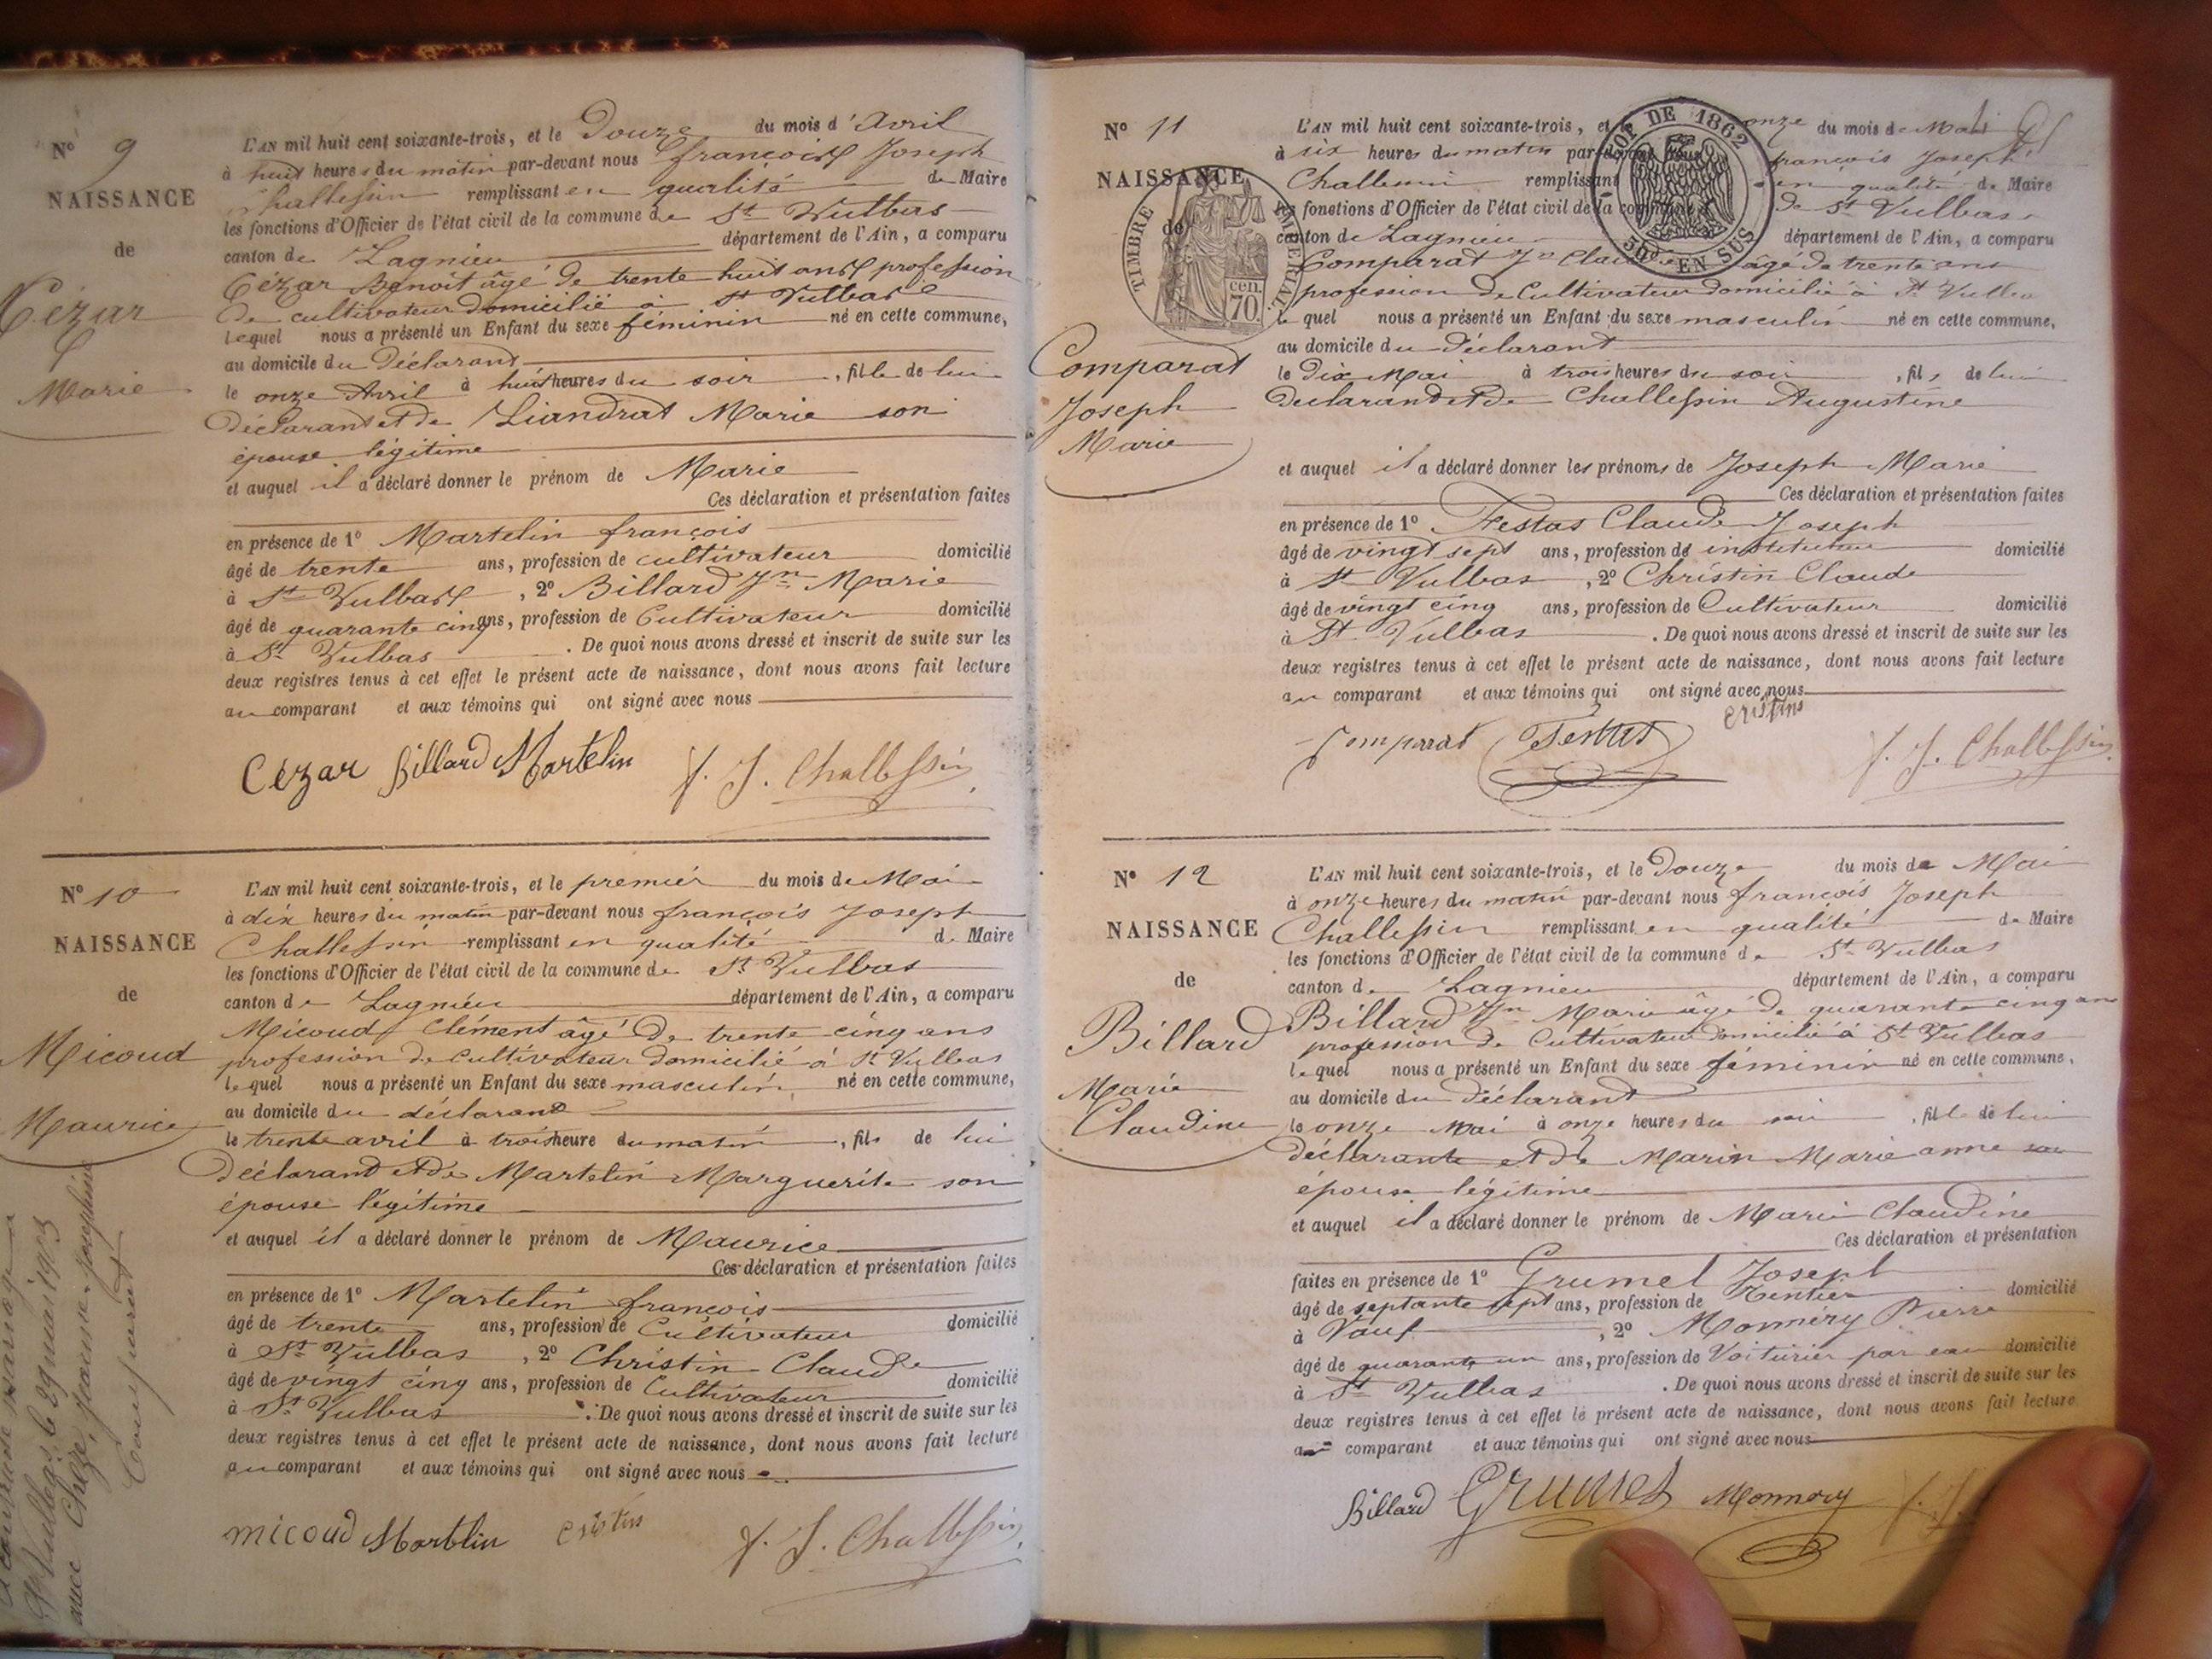 N° 9
NAISSANCE
de
Cézar
Marie
L'AN mil huit cent soixante-trois, et le Douze du mois d'Avril
à huit heures du matin par-devant nous françois Joseph
Challessin remplissant en qualité de Maire
les fonctions d'Officier de l'état civil de la commune de St Vulbas
canton de Lagnieu département de l'Ain, a comparu
Cézar Benoit âgé de trente huit ans profession
de cultivateur domicilié à St Vulbas
lequel nous a présenté un Enfant du sexe féminin né en cette commune,
au domicile du Déclarant
le onze Avril à huit heures du soir, fille de lui
Déclarant et de Liandrat Marie son
épouse légitime
et auquel il a déclaré donner le prénom de Marie
Ces déclaration et présentation faites
en présence de 1° Martelin françois
âgé de trente ans, profession de cultivateur domicilié
à St Vulbas, 2° Billard Jn Marie
âgé de quarante cinq ans, profession de Cultivateur domicilié
à St Vulbas. De quoi nous avons dressé et inscrit de suite sur les
deux registres tenus à cet effet le présent acte de naissance, dont nous avons fait lecture
au comparant et aux témoins qui ont signé avec nous
Cézar Billard Martelin f. J. Challessin
N° 10
NAISSANCE
de
Micoud
Maurice
mariage
St Vulbas, le 29 mai 1903
avec Chêze, Jeanne, Josephine
L'AN mil huit cent soixante-trois, et le premier du mois de Mai
à dix heures du matin par-devant nous françois Joseph
Challessin remplissant en qualité de Maire
les fonctions d'Officier de l'état civil de la commune de St Vulbas
canton de Lagnieu département de l'Ain, a comparu
Micoud Clément âgé de trente cinq ans
profession de cultivateur domicilié à St Vulbas
lequel nous a présenté un Enfant du sexe masculin né en cette commune,
au domicile du déclarant
le trente avril à trois heure du matin, fils de lui
Déclarant et de Martelin Marguerite son
épouse légitime
et auquel il a déclaré donner le prénom de Maurice
Ces déclaration et présentation faites
en présence de 1° Martelin françois
âgé de trente ans, profession de Cultivateur domicilié
à St Vulbas, 2° Christin Claude
âgé de vingt cinq ans, profession de Cultivateur domicilié
à St Vulbas. De quoi nous avons dressé et inscrit de suite sur les
deux registres tenus à cet effet le présent acte de naissance, dont nous avons fait lecture
au comparant et aux témoins qui ont signé avec nous
micoud Martelin f. J. Challessin
N° 11
NAISSANCE
de
TIMBRE IMPERIAL
70 cen.
LOI DE 1862
50c EN SUS
Comparat
Joseph
Marie
L'AN mil huit cent soixante-trois, et le onze du mois de Mai
à six heures du matin par-devant nous françois Joseph
Challessin remplissant en qualité de Maire
les fonctions d'Officier de l'état civil de la commune de St Vulbas
canton de Lagnieu département de l'Ain, a comparu
Comparat Jn Claude âgé de trente ans
profession de Cultivateur domicilié à St Vulbas
lequel nous a présenté un Enfant du sexe masculin né en cette commune,
au domicile du déclarant
le Dix Mai à trois heures du soir, fils de lui
Declarand et de Challessin Augustine
et auquel il a déclaré donner les prénoms de Joseph Marie
Ces déclaration et présentation faites
en présence de 1° Festas Claude Joseph
âgé de vingt sept ans, profession de instituteur domicilié
à St Vulbas, 2° Christin Claude
âgé de vingt cinq ans, profession de Cultivateur domicilié
à St Vulbas. De quoi nous avons dressé et inscrit de suite sur les
deux registres tenus à cet effet le présent acte de naissance, dont nous avons fait lecture
au comparant et aux témoins qui ont signé avec nous
Comparat f. J. Challessin
N° 12
NAISSANCE
de
Billard
Marie
Claudine
L'AN mil huit cent soixante-trois, et le Douze du mois de Mai
à onze heures du matin par-devant nous françois Joseph
Challessin remplissant en qualité de Maire
les fonctions d'Officier de l'état civil de la commune de St Vulbas
canton de Lagnieu département de l'Ain, a comparu
Billard Jn Marie âgé de quarante cinq ans
profession de Cultivateur domicilié à St Vulbas
lequel nous a présenté un Enfant du sexe féminin né en cette commune,
au domicile du déclarant
le onze Mai à onze heures du soir, fille de lui
déclarante et de Marin Marie anne son
épouse légitime
et auquel il a déclaré donner le prénom de Marie Claudine
Ces déclaration et présentation
faites en présence de 1° Grumel Joseph
âgé de septante sept ans, profession de Rentier domicilié
à Vaux, 2° Monnéry Pierre
âgé de quarante un ans, profession de Voiturier par eau domicilié
à St Vulbas. De quoi nous avons dressé et inscrit de suite sur les
deux registres tenus à cet effet le présent acte de naissance, dont nous avons fait lecture
au comparant et aux témoins qui ont signé avec nous
Billard Grumel Monnéry f. J.